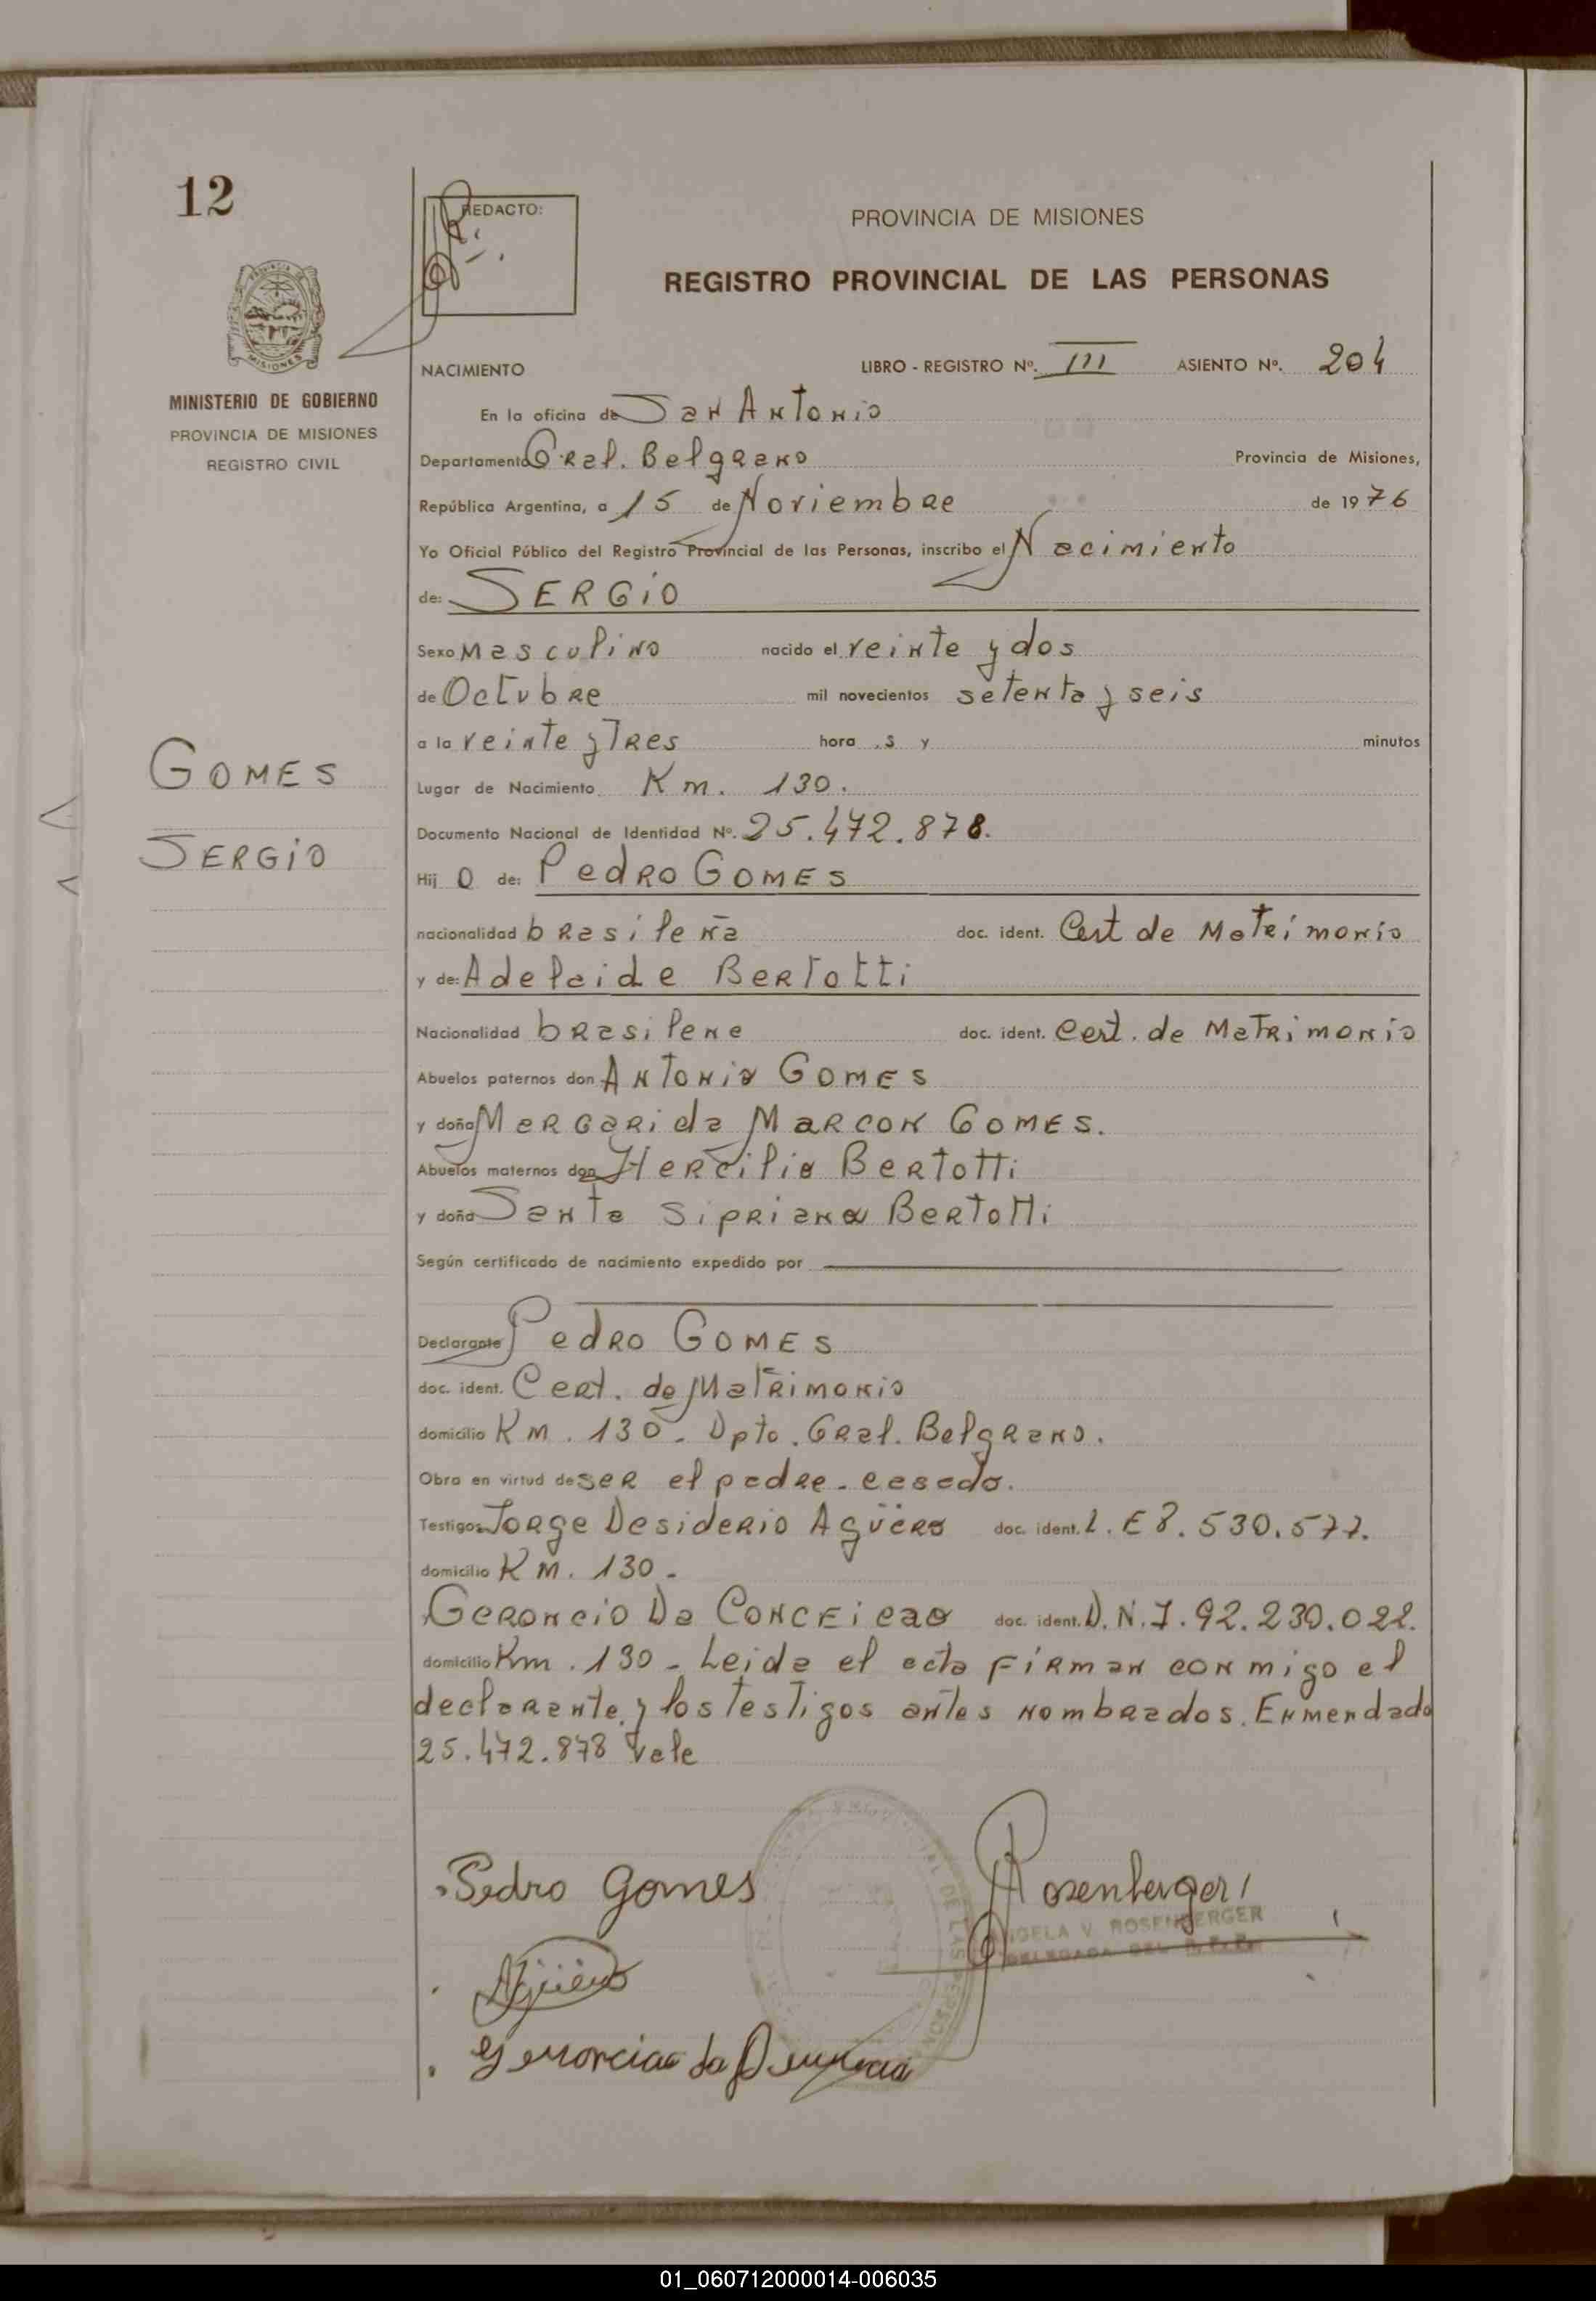 12
REDACTO:
PROVINCIA DE MISIONES
REGISTRO PROVINCIAL DE LAS PERSONAS
MISIONES
MINISTERIO DE GOBIERNO
PROVINCIA DE MISIONES
REGISTRO CIVIL
NACIMIENTO LIBRO - REGISTRO Nº. III ASIENTO Nº. 204
En la oficina de San Antonio
Departamento Gral. Belgrano Provincia de Misiones,
República Argentina, a 15 de Noviembre de 1976
Yo Oficial Público del Registro Provincial de las Personas, inscribo el Nacimiento
de: SERGIO
Sexo Masculino nacido el veinte y dos
de Octubre mil novecientos setenta y seis
a la veinte y Tres hora s y minutos
GOMES
SERGIO
Lugar de Nacimiento Km. 130.
Documento Nacional de Identidad Nº. 25.472.878.
Hij o de: Pedro GOMES
nacionalidad brasileña doc. ident. Cert de Matrimonio
y de: Adelaide Bertotti
Nacionalidad brasilena doc. ident. Cert. de Matrimonio
Abuelos paternos don Antonio GOMES
y doña Margarida Marcon GOMES.
Abuelos maternos don Hercilio Bertotti
y doña Santa Sipriana Bertotti
Según certificado de nacimiento expedido por
Declarante Pedro GOMES
doc. ident. Cert. de Matrimonio
domicilio Km. 130 - Dpto. Gral. Belgrano.
Obra en virtud de ser el padre - casado.
Testigos Jorge Desiderio Agüero doc. ident. L.E 8.530.577.
domicilio Km. 130 -
Geroncio Da Conceicao doc. ident. D.N.I. 92.230.022.
domicilio Km. 130 - Leida el acta firman conmigo el
declarante y los testigos antes nombrados. Enmendado
25.472.878 Vale
Pedro Gomes
Rosenberger
ANGELA V. ROSENBERGER
DELEGADA DEL R.P.P.
Agüero
01_060712000014-006035